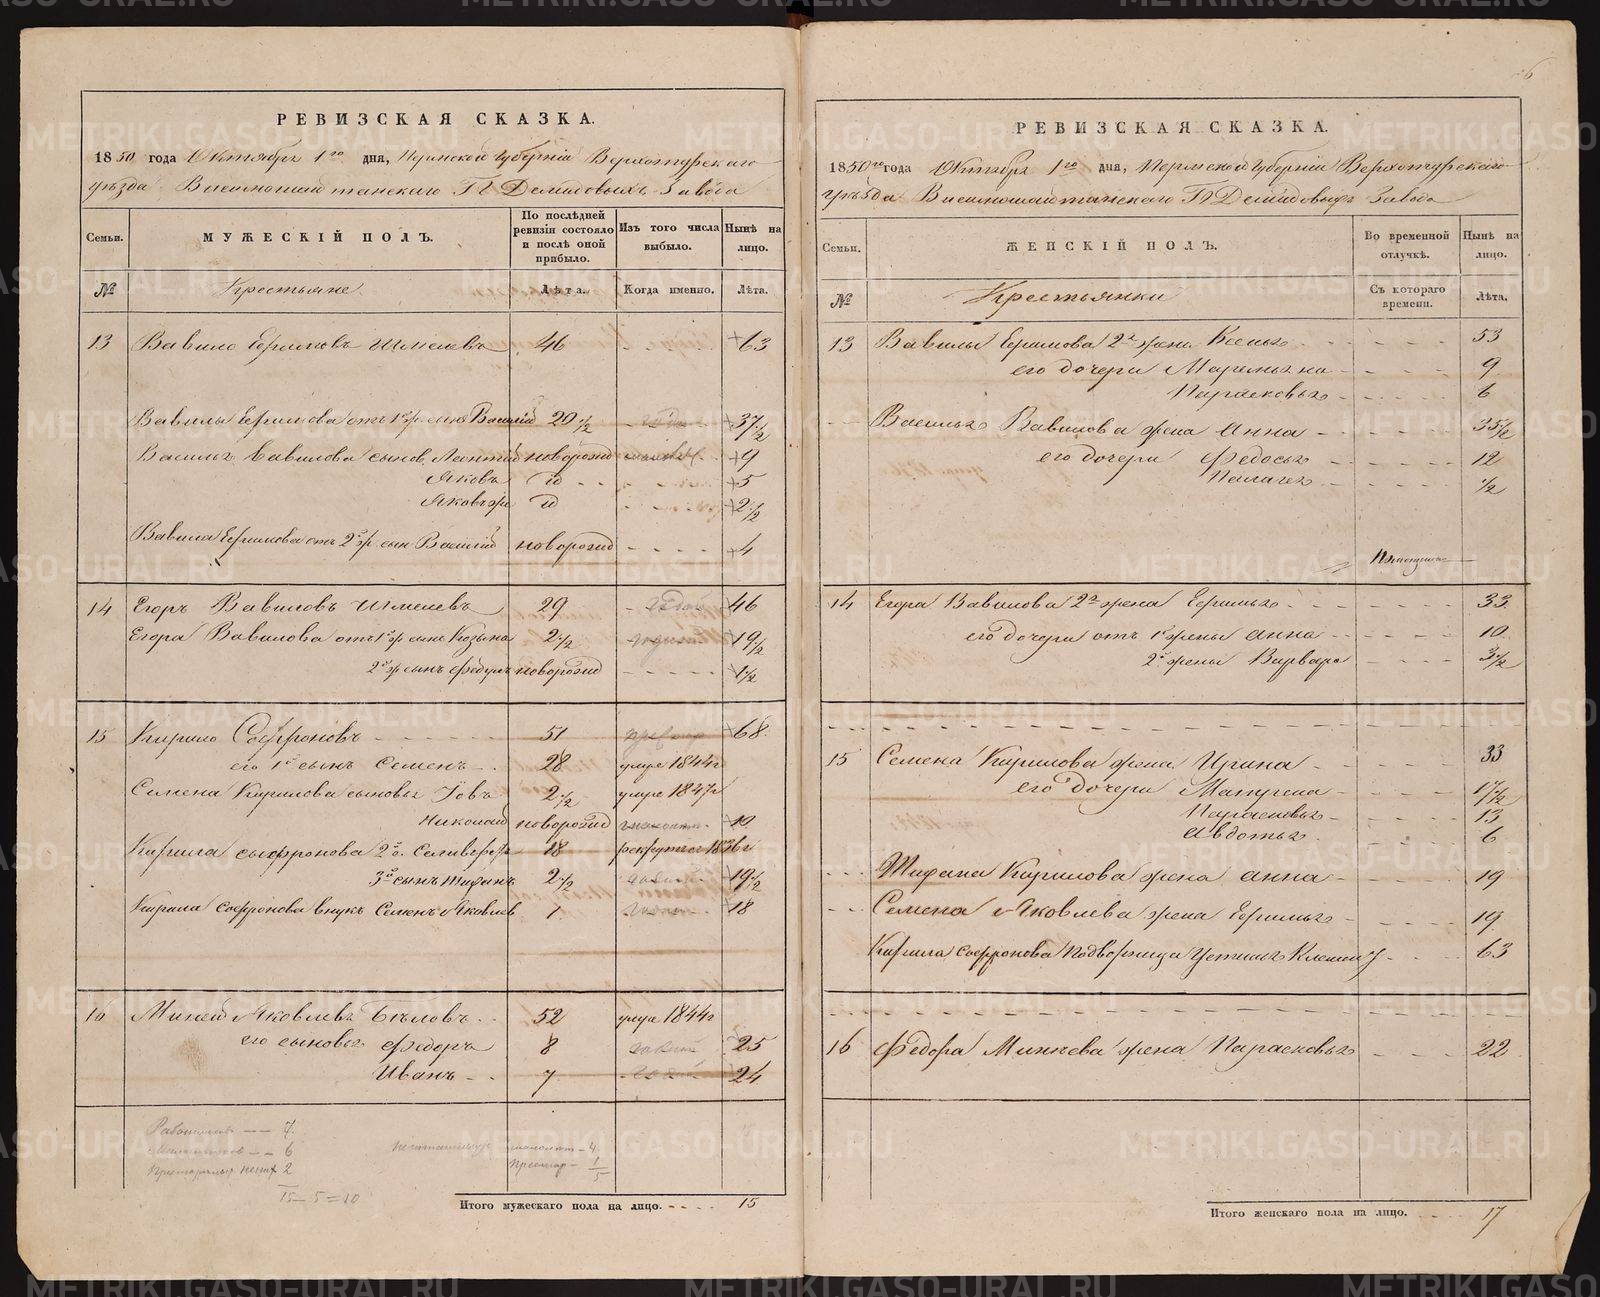 РЕВИЗСКАЯ СКАЗКА.
1850 года Октября 1го дня, Пермской Губерніи Верхотурскаго
уѣзда Висимошайтанскаго Г Г Демидовыхъ Завода
Семьи. МУЖЕСКІЙ ПОЛЪ. По послѣдней ревизіи состояло и послѣ оной прибыло. Изъ того числа выбыло. Нынѣ на лицо.
№ Крестьяне Лѣта. Когда именно. Лѣта.
13 Вавило Ефимовъ Шмелевъ 46 63
Вавилы Ефимова отъ 1й ж. сынъ Василій 20 1/2 37 1/2
Василья Вавилова сынов. Леонтій новорожд 9
Яковъ id 5
Яковъ же id 2 1/2
Вавила Ефимова отъ 2й ж. сын Василій новорожд 4
14 Егоръ Вавиловъ Шмелевъ 29 годой 46
Егора Вавилова отъ 1й ж сынъ Козьма 2 1/2 19 1/2
2й ж сынъ Федулъ новорожд 1 1/2
15 Кирило Софроновъ 51 68
его 1й сынъ Семенъ 28 умре 1844г
Семена Кирилова сыновья Іовъ 2 1/2 умре 1847г
Николай новорожд 10
Кирила Сыфронова 2й Селиверстъ 18 рекрутъ 1836г
3й сынъ Тифанъ 2 1/2 19 1/2
Кирила Софронова внукъ Семенъ Яковлев 1 18
16 Миней Яковлевъ Бѣловъ 52 умре 1844г
его сыновья Федоръ 8 25
Иванъ 7 24
7
6
2
15 - 5 = 10
4
1
5
Итого мужескаго пола на лицо. 15
РЕВИЗСКАЯ СКАЗКА.
1850го года Октября 1го дня, Пермской Губерніи Верхотурскаго
уѣзда Висимошайтанскаго Г Г Демидовыхъ Завода
Семьи. ЖЕНСКІЙ ПОЛЪ. Во временной отлучкѣ. Нынѣ на лицо.
№ Крестьянки Съ котораго времени. Лѣта.
13 Вавилы Ефимова 2я жена Ксенья 53
его дочери Маремьяна 9
Парасковья 6
Василья Вавилова жена Анна 35 1/2
его дочери Федосья 12
Пелагея 1/2
14 Егора Вавилова 2я жена Ефимья 33
его дочери отъ 1й жены Анна 10
2й жены Варвара 3 1/2
15 Семена Кирилова жена Ирина 33
его дочери Матрена 17 1/2
Парасковья 13
Авдотья 6
Тифана Кирилова жена Анна 19
Семена Яковлева жена Ефимья 19
Кирила Софронова подворница Устинья 63
16 Федора Минѣева жена Парасковья 22
Итого женскаго пола на лицо. 17
METRIKI.GASO-URAL.RU